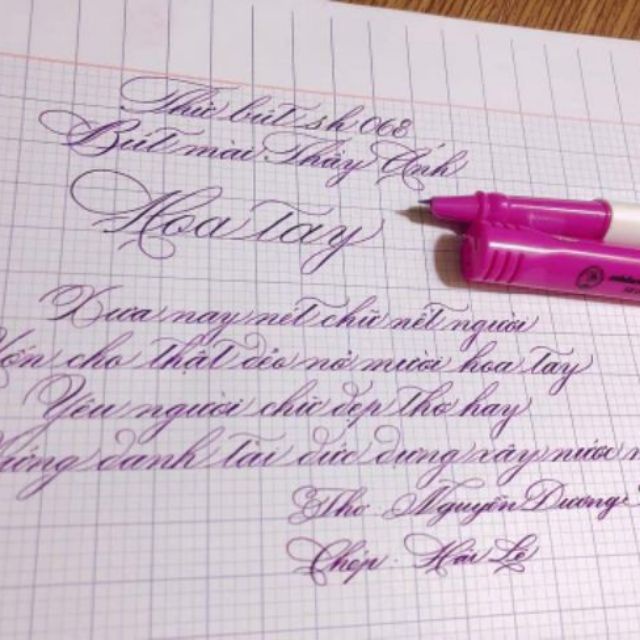 Thử bút sh 068
Bút mài Thầy Ánh
Hoa Tay
Xưa nay nét chữ nét người
cho thật dẻo nở mười hoa tay
Yêu người chữ đẹp thơ hay
danh tài đức dựng xây nước
Thơ Nguyễn Dương
Chép: Hải Lê